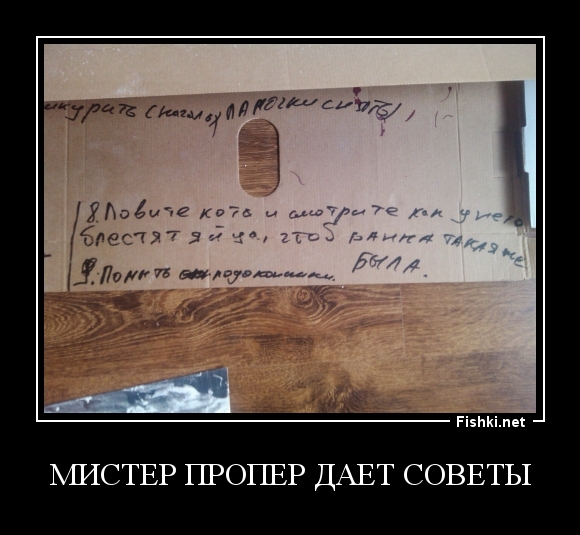 шкурить (на полах ЛАМПОЧКИ СНЯТЬ),
8. Ловите кота и смотрите как у него
блестят яйца, чтоб ВАННА ТАКАЯ ЖЕ
БЫЛА.
9. Помыть подоконники.
Fishki.net
МИСТЕР ПРОПЕР ДАЕТ СОВЕТЫ